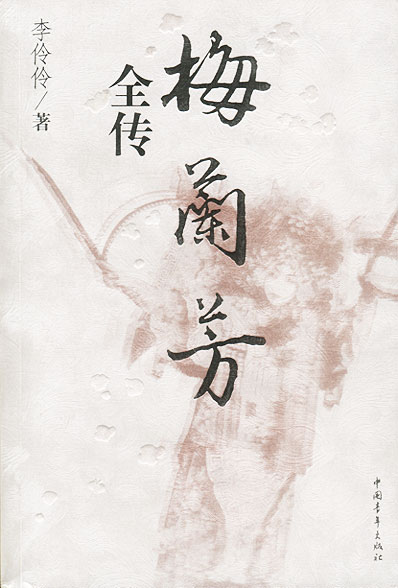 李伶伶/著
梅蘭芳
全传
中国青年出版社